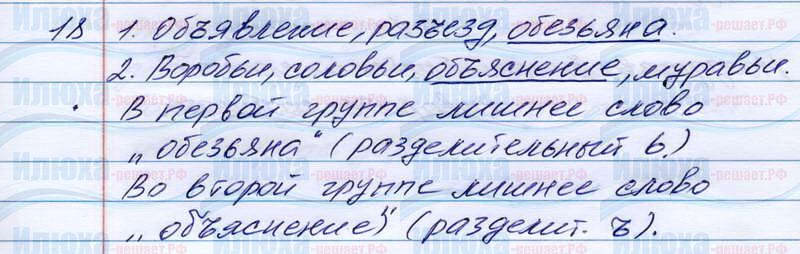 18 1. Объявление, разъезд, обезьяна.
2. Воробьи, соловьи, объяснение, муравьи.
В первой группе лишнее слово
„обезьяна“ (разделительный ь.)
Во второй группе лишнее слово
„объяснение“ (разделит. ъ).